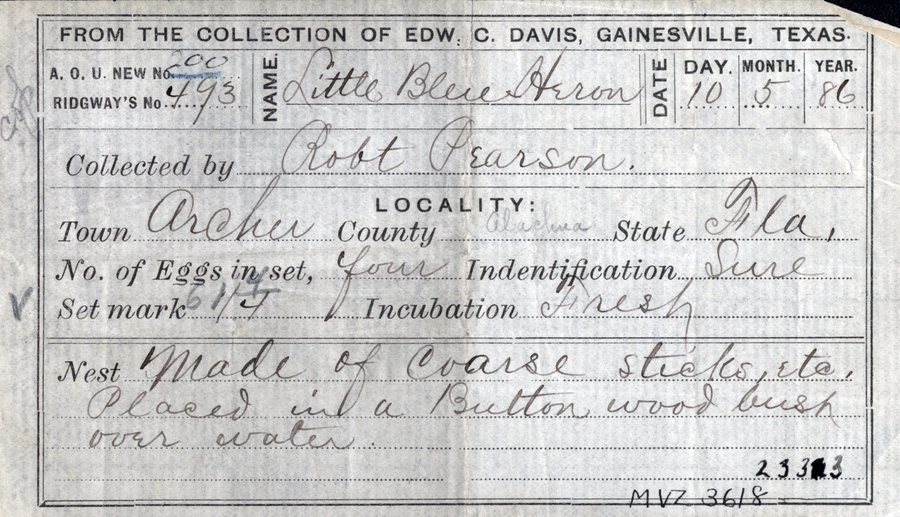 FROM THE COLLECTION OF EDW. C. DAVIS, GAINESVILLE, TEXAS.
A. O. U. NEW No. 200 NAME. Little Blue Heron DATE DAY. 10 MONTH. 5 YEAR. 86
RIDGWAY'S No. 493
Collected by Robt Pearson.
LOCALITY:
Town Archer County Alachua State Fla,
No. of Eggs in set, four Indentification Sure
Set mark 4 Incubation Fresh
Nest Made of Coarse sticks, etc,
Placed in a Button wood bush
over water.
MVZ 3618